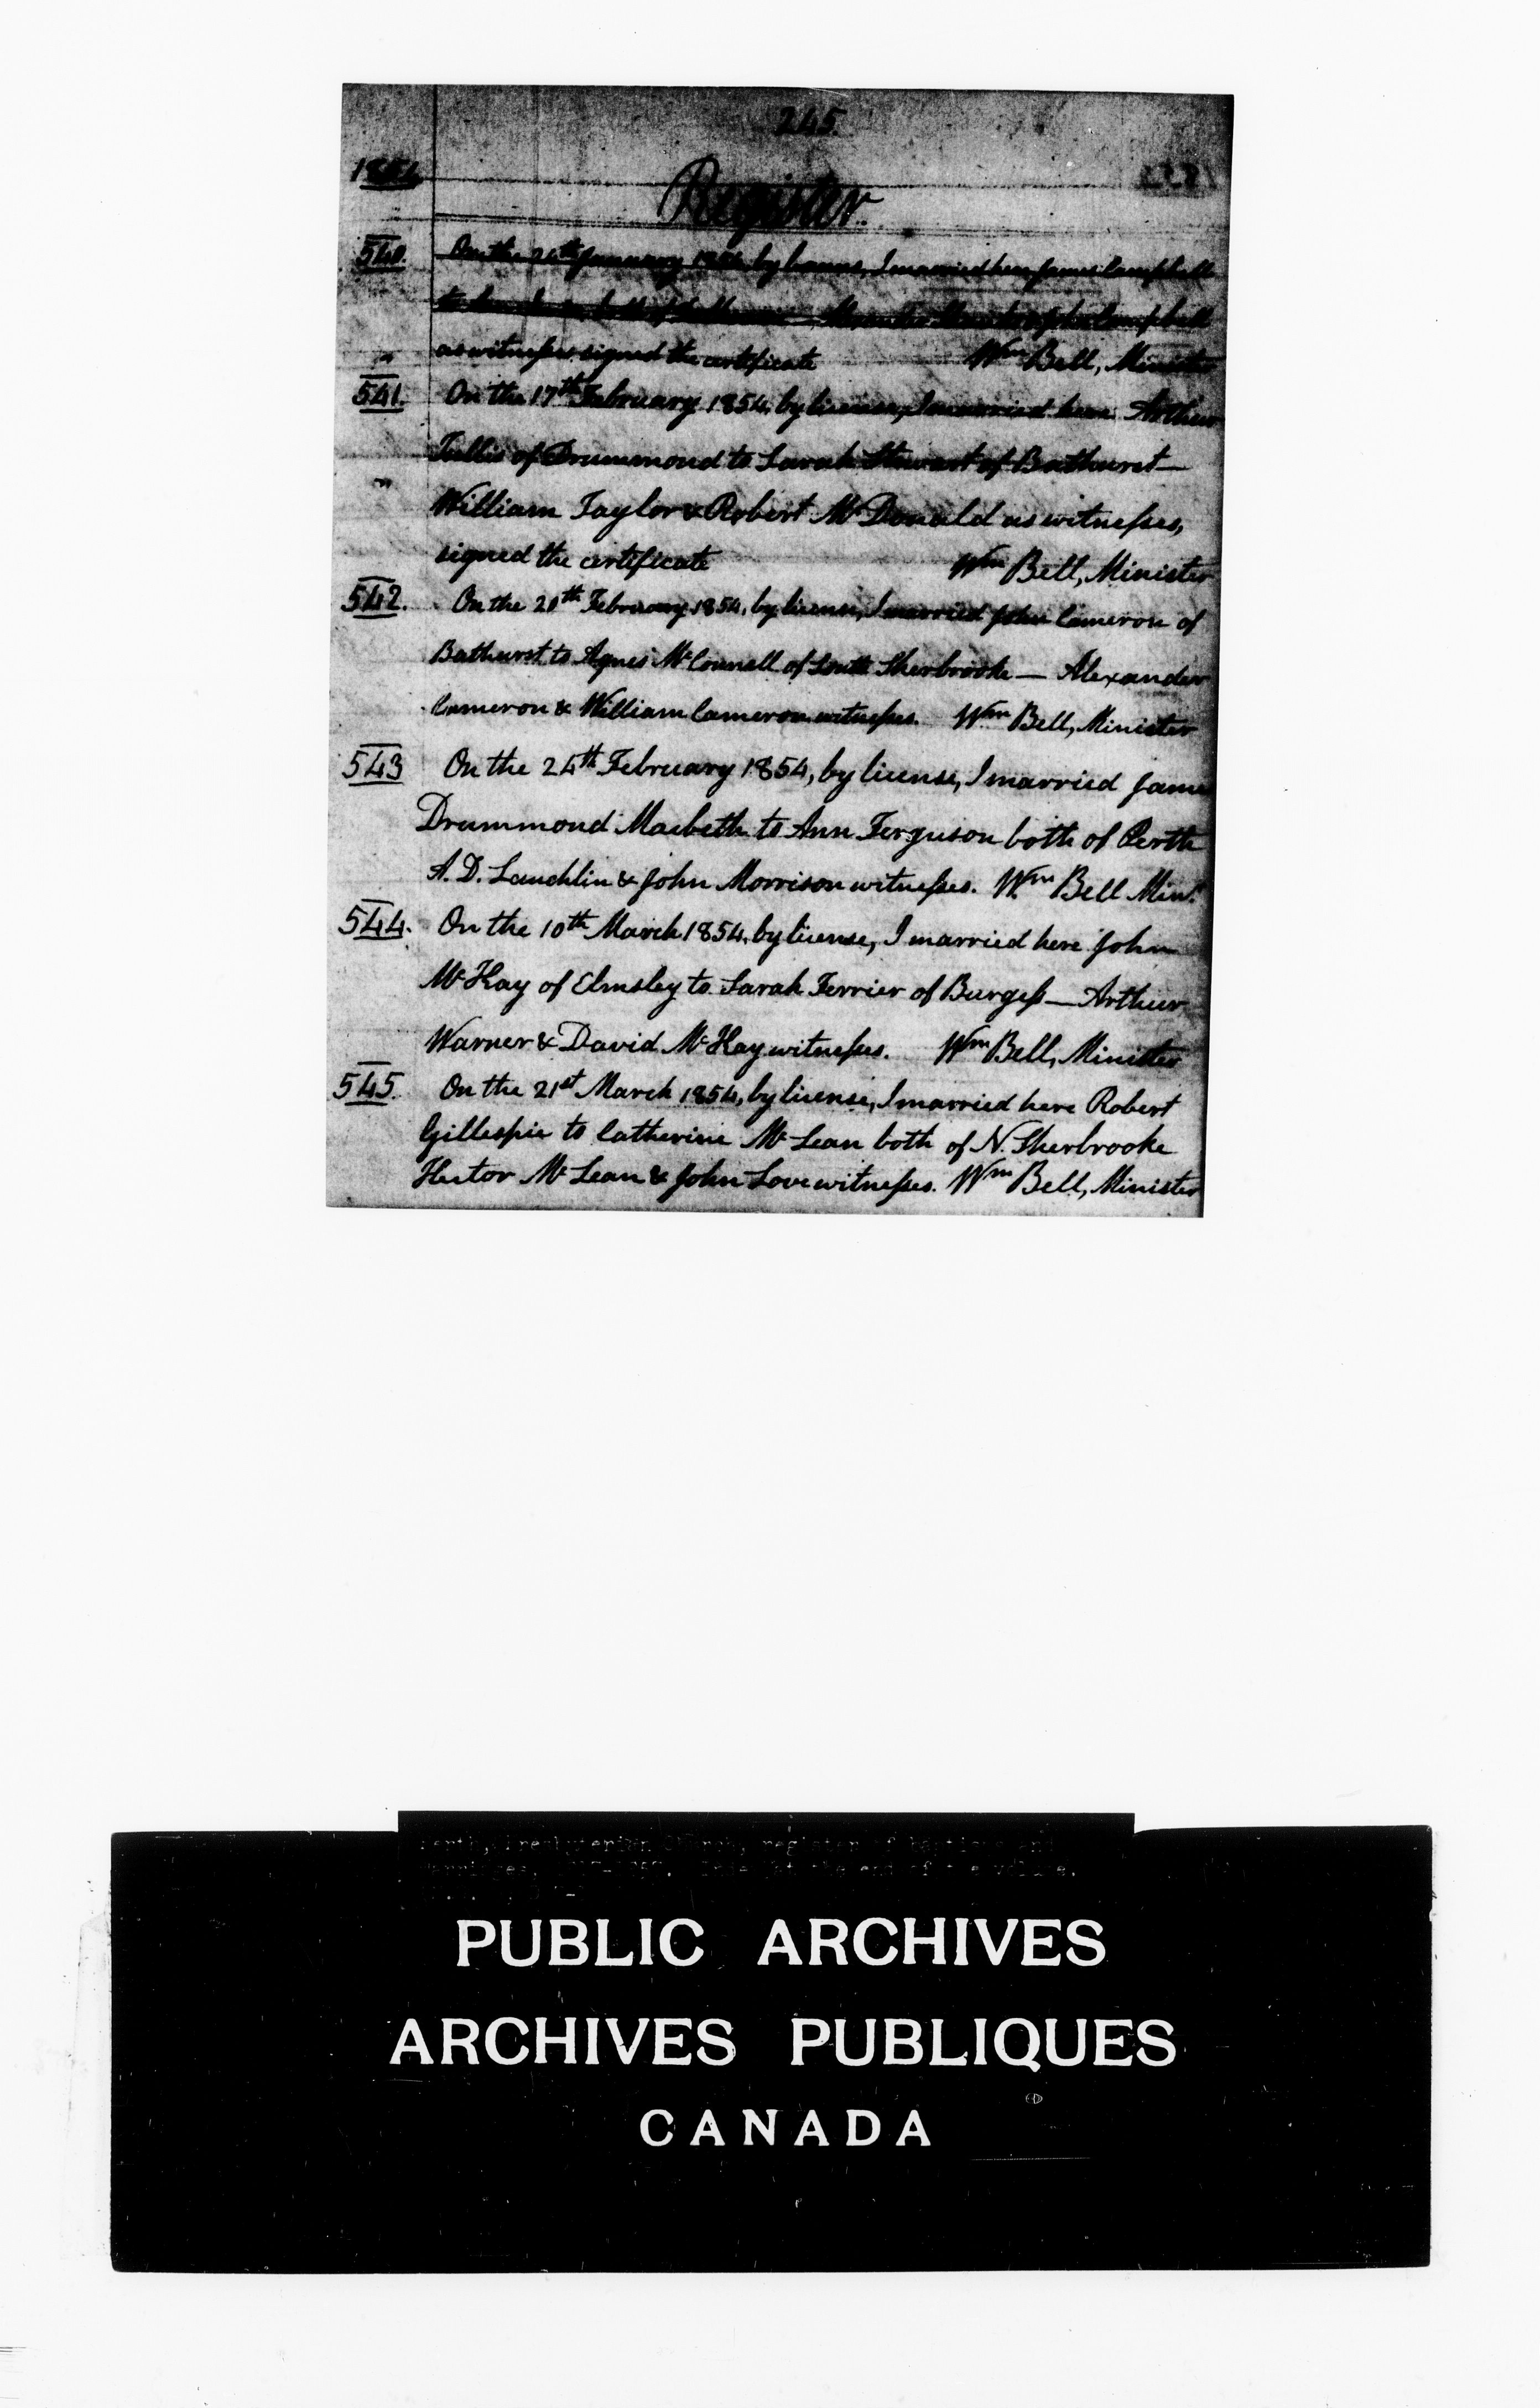 245.
1854
Register.
540. On the 26th January 1854 by banns, I married here James Campbell
to both of
as witnesses signed the certificate Wm Bell, Minister
541. On the 17th February 1854, by license, I married here Arthur
Tullis of Drummond to Sarah Stewart of Bathurst—
William Taylor & Robert McDonald as witnesses,
signed the certificate Wm Bell, Minister
542. On the 20th February 1854, by license, I married John Cameron of
Bathurst to Agnes McConnell of South Sherbrooke — Alexander
Cameron & William Cameron witnesses. Wm Bell, Minister
543 On the 24th February 1854, by license, I married James
Drummond Macbeth to Ann Ferguson both of Perth
A. D. Lauchlin & John Morrison witnesses. Wm Bell Minr.
544. On the 10th March 1854, by license, I married here John
McKay of Elmsley to Sarah Ferrier of Burgess — Arthur
Warner & David McKay witnesses. Wm Bell, Minister
545. On the 21st March 1854, by license, I married here Robert
Gillespie to Catherine McLean both of N. Sherbrooke
Hector McLean & John Love witnesses. Wm Bell, Minister
Perth, Presbyterian Church, register of baptisms and
marriages, Index at the end of the volume.
PUBLIC ARCHIVES
ARCHIVES PUBLIQUES
CANADA